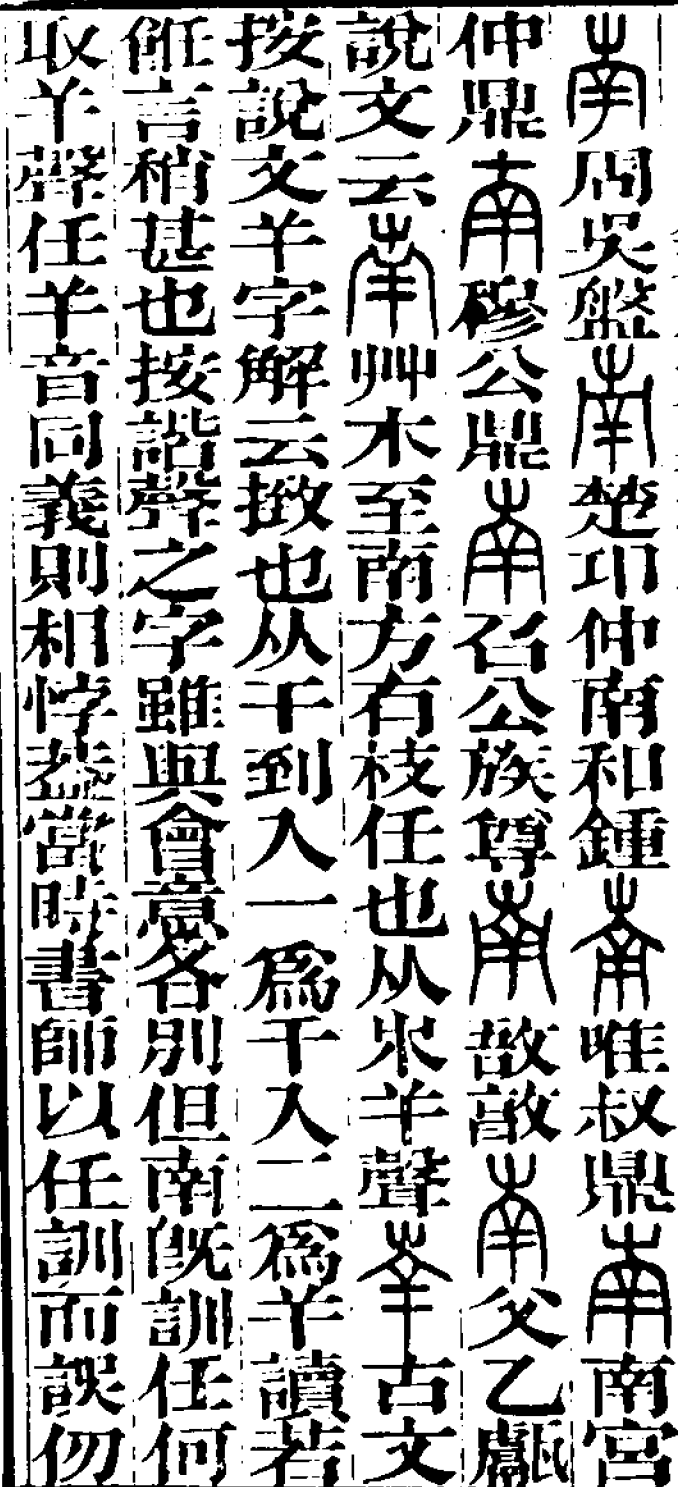 南周吳盤南楚邛仲南和鍾南唯叔鼎南南宮
仲鼎南穆公鼎南召公族尊南敔敦南父乙甗
說文云南艸木至南方有枝任也从𣎵𢆉聲𡴖古文
按說文𢆉字解云撖也从干到入一為干入二為𢆉讀若
飪言稍甚也按諧聲之字雖與會意各別但南既訓任何
取𢆉聲任𢆉音同義則相悖葢當時書師以任訓而誤仞